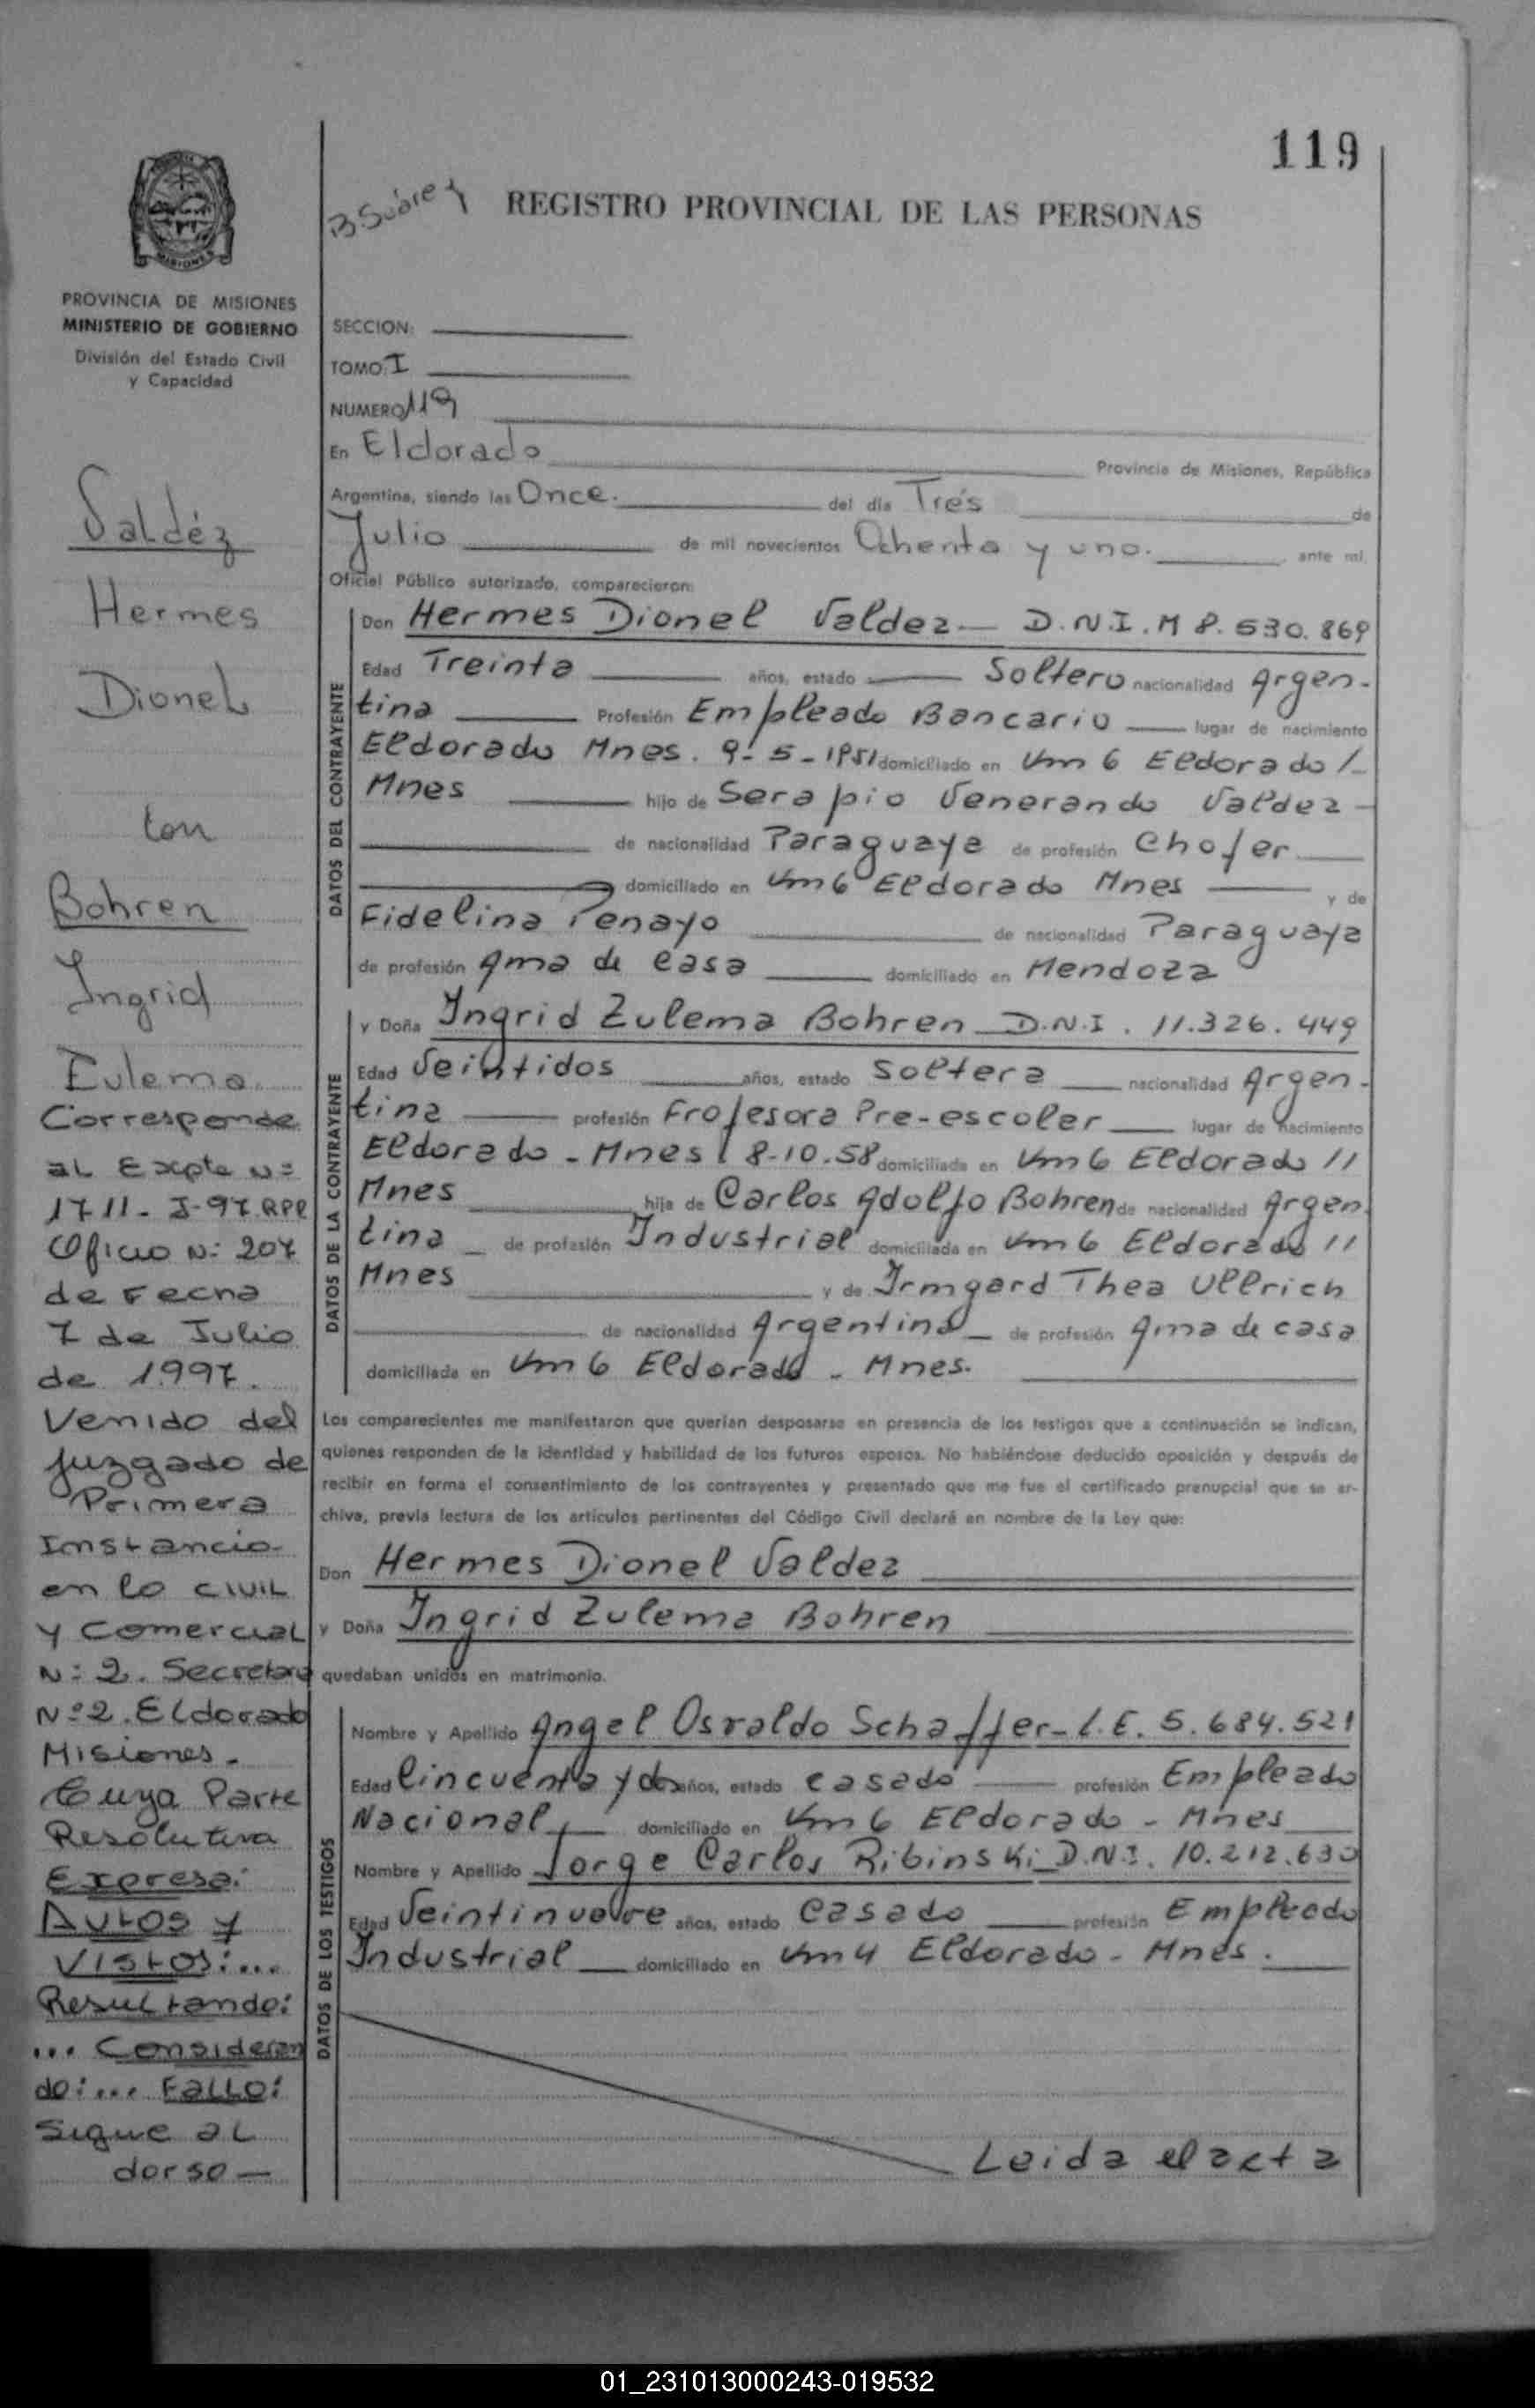 119
B. Suárez
REGISTRO PROVINCIAL DE LAS PERSONAS
MISIONES
PROVINCIA DE MISIONES
MINISTERIO DE GOBIERNO
División del Estado Civil
y Capacidad
Valdéz
Hermes
Dionel
Con
Bohren
Ingrid
Zulema
Corresponde
al Expte N=
1711-J-97 RPP
Oficio N: 207
de Fecha
7 de Julio
de 1997.
Venido del
Juzgado de
Primera
Instancia
en lo CIVIL
y Comercial
N: 2. Secretaria
Nº 2. Eldorado
Misiones.
Cuya Parte
Resolutiva
Expresa:
Autos y
Vistos:...
Resultando:
... Consideran
do:... Fallo:
Sigue al
dorso—
SECCION:
TOMO: I
NUMERO 119
En Eldorado Provincia de Misiones, República
Argentina, siendo las Once. del día Trés de
Julio de mil novecientos Ochenta y uno. ante mi,
Oficial Público autorizado, comparecieron:
DATOS DEL CONTRAYENTE
Don Hermes Dionel Valdez — D.N.I. M 8.530.869
Edad Treinta años, estado Soltero nacionalidad Argen-
tina Profesión Empleado Bancario lugar de nacimiento
Eldorado Mnes. 9-5-1951 domiciliado en Km 6 Eldorado /-
Mnes hijo de Serapio Venerando Valdez -
de nacionalidad Paraguaya de profesión Chofer
domiciliado en Km 6 Eldorado Mnes y de
Fidelina Penayo de nacionalidad Paraguaya
de profesión Ama de Casa domiciliado en Mendoza
DATOS DE LA CONTRAYENTE
y Doña Ingrid Zulema Bohren D.N.I. 11.326.449
Edad Veintidos años, estado Soltera nacionalidad Argen-
tina profesión Profesora Pre-escolar lugar de nacimiento
Eldorado - Mnes 18-10.58 domiciliada en Km 6 Eldorado //
Mnes hija de Carlos Adolfo Bohren de nacionalidad Argen.
tina de profesión Industrial domiciliada en Km 6 Eldorado //
Mnes y de Irmgard Thea Ullrich
de nacionalidad Argentina de profesión Ama de casa
domiciliada en Km 6 Eldorado - Mnes.
Los comparecientes me manifestaron que querían desposarse en presencia de los testigos que a continuación se indican,
quienes responden de la identidad y habilidad de los futuros esposos. No habiéndose deducido oposición y después de
recibir en forma el consentimiento de los contrayentes y presentado que me fue el certificado prenupcial que se ar-
chiva, previa lectura de los artículos pertinentes del Código Civil declaré en nombre de la Ley que:
Don Hermes Dionel Valdez
y Doña Ingrid Zulema Bohren
quedaban unidos en matrimonio.
DATOS DE LOS TESTIGOS
Nombre y Apellido Angel Osvaldo Schaffer - L.E. 5.684.521
Edad Cincuenta y dos años, estado casado profesión Empleado
Nacional domiciliado en Km 6 Eldorado - Mnes
Nombre y Apellido Jorge Carlos Ribinski D.N.I. 10.212.630
Edad Veintinueve años, estado Casado profesión Empleado
Industrial domiciliado en Km 4 Eldorado - Mnes.
Leida el acta
01_231013000243-019532